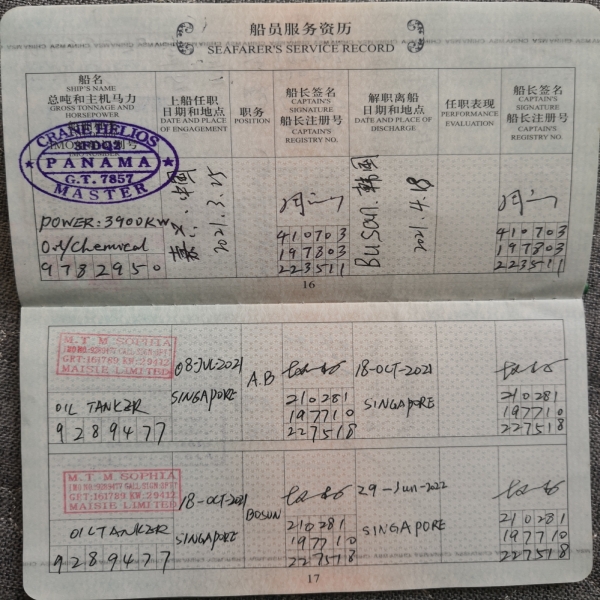 船员服务资历
SEAFARER'S SERVICE RECORD
船名
SHIP'S NAME
总吨和主机马力
GROSS TONNAGE AND
HORSEPOWER
上船任职
日期和地点
DATE AND PLACE
OF ENGAGEMENT
职务
POSITION
船长签名
CAPTAIN'S
SIGNATURE
船长注册号
CAPTAIN'S
REGISTRY NO.
解职离船
日期和地点
DATE AND PLACE OF
DISCHARGE
任职表现
PERFORMANCE
EVALUATION
船长签名
CAPTAIN'S
SIGNATURE
船长注册号
CAPTAIN'S
REGISTRY NO.
CRANE HELIOS
3FDQ2
PANAMA
G.T. 7857
MASTER
POWER: 3900KW
Oil/Chemical
9782950
中国
2021.3.25
410703
197803
223511
Busan.韩国
2021.4.18
410703
197803
223511
16
M.T M SOPHIA
GRT:161789 KW:29412
MAISIE LIMITED
OIL TANKER
9289477
08-JUL-2021
SINGAPORE
A.B
210281
197710
227518
18-OCT-2021
SINGAPORE
210281
197710
227518
M.T M SOPHIA
GRT:161789 KW:29412
MAISIE LIMITED
OIL TANKER
9289477
18-OCT-2021
SINGAPORE
BOSUN
210281
197710
227518
29-Jun-2022
SINGAPORE
210281
197710
227518
17